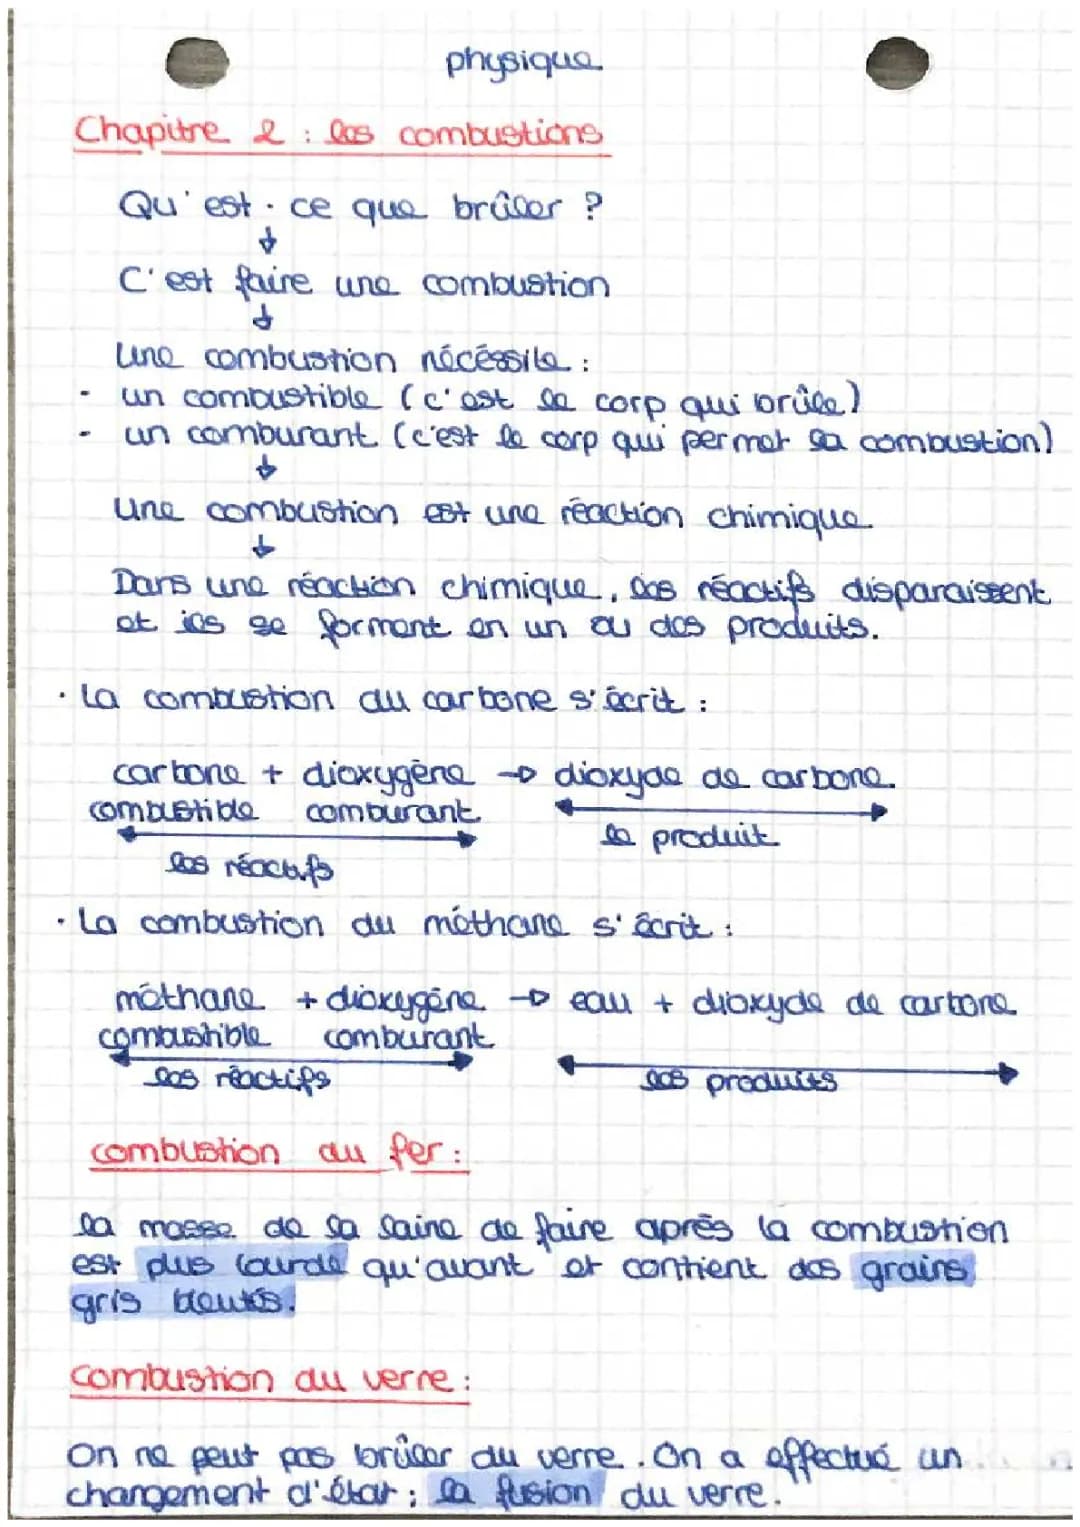 physique
Chapitre 2 : les combustions
Qu'est-ce que brûler ?
↓
C'est faire une combustion
↓
Une combustion nécéssite :
- un combustible (c'est le corp qui brûle)
- un comburant (c'est le corp qui permet la combustion)
↓
Une combustion est une réaction chimique
↓
Dans une réaction chimique, les réactifs disparaissent
et ils se forment en un ou des produits.
· La combustion du carbone s'écrit :
carbone + dioxygène → dioxyde de carbone.
combustible comburant
le produit
les réactifs
· La combustion du méthane s'écrit :
méthane + dioxygène → eau + dioxyde de carbone
combustible comburant
les réactifs les produits
combustion du fer :
la masse de la laine de faire après la combustion
est plus lourde qu'avant et contient des grains
gris bleutés.
Combustion du verre :
On ne peut pas brûler du verre. On a effectué un
changement d'état : la fusion du verre.